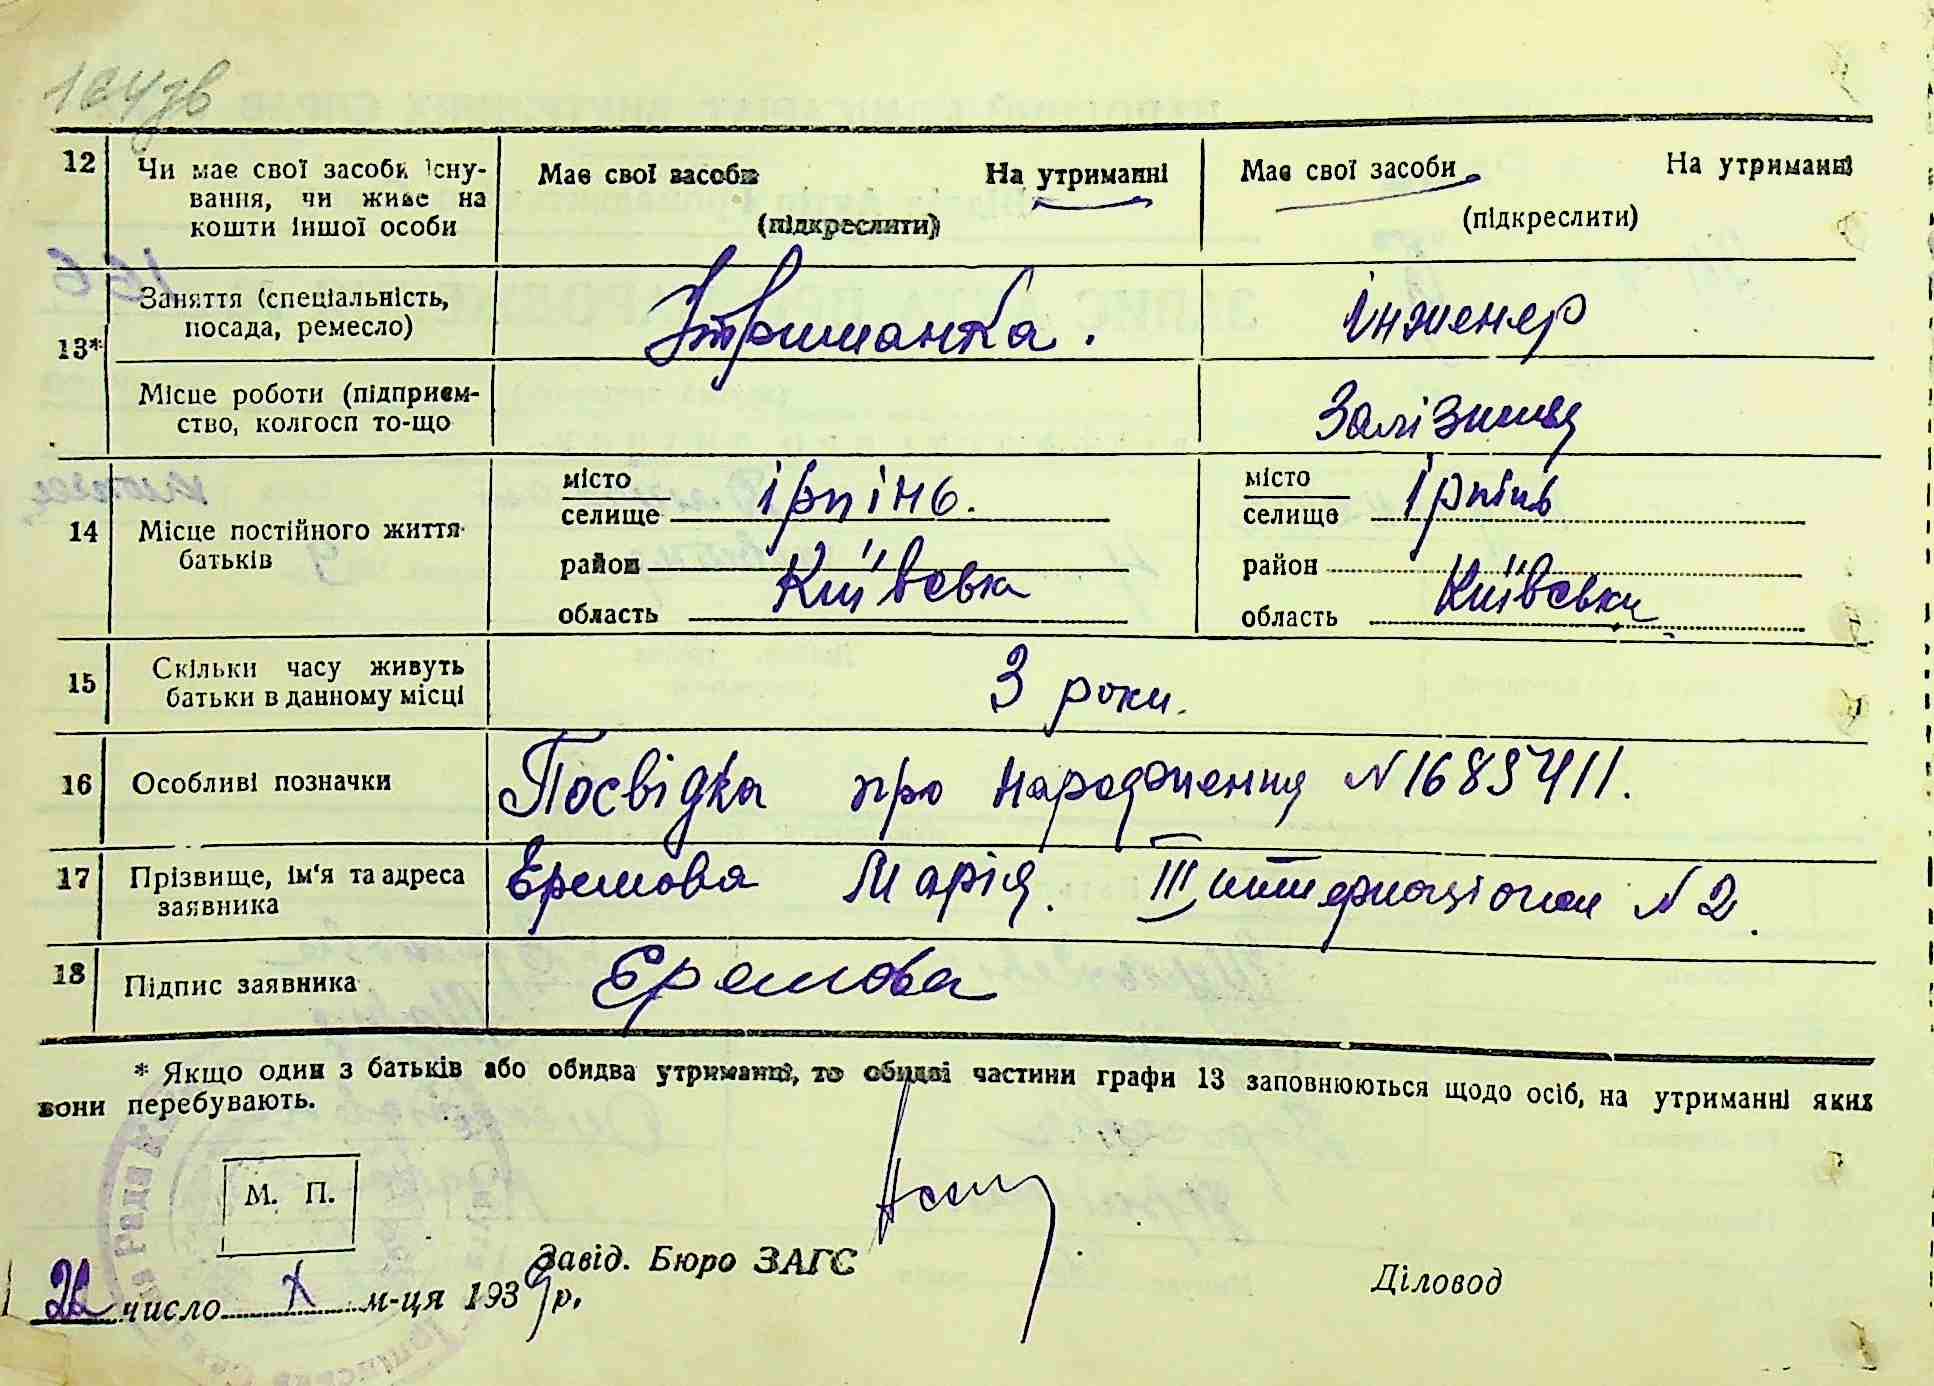 164 зв
12 Чи має свої засоби існу-
вання, чи живе на
кошти іншої особи
Має свої засоби На утриманні
(підкреслити)
Має свої засоби На утриманні
(підкреслити)
13*
Заняття (спеціальність,
посада, ремесло)
Утриманка.
інженер
Місце роботи (підприєм-
ство, колгосп то-що
Залізниця
14 Місце постійного життя
батьків
місто
селище ірпінь.
район
область Київська
місто
селище Ірпінь
район
область Київська
15 Скільки часу живуть
батьки в данному місці
3 роки.
16 Особливі позначки
Посвідка про народження N1689411.
17 Прізвище, ім'я та адреса
заявника
Еремова Марія. III интернаціонал N 2.
18 Підпис заявника
Еремова
* Якщо один з батьків або обидва утриманці, то обидві частини графи 13 заповнюються щодо осіб, на утриманні яких
вони перебувають.
М. П.
Завід. Бюро ЗАГС
Діловод
22 число X м-ця 1939 р.